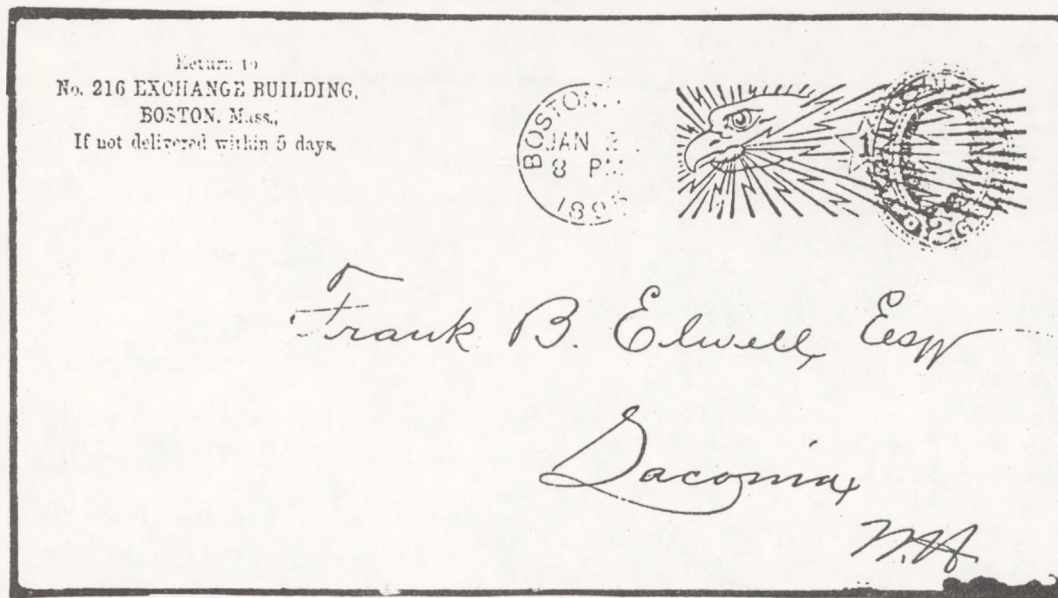 Return to
No. 216 EXCHANGE BUILDING,
BOSTON, Mass.,
If not delivered within 5 days.
BOSTON.
JAN
8 P
189
1
Frank B. Elwell, Esq
Laconia,
N.H.